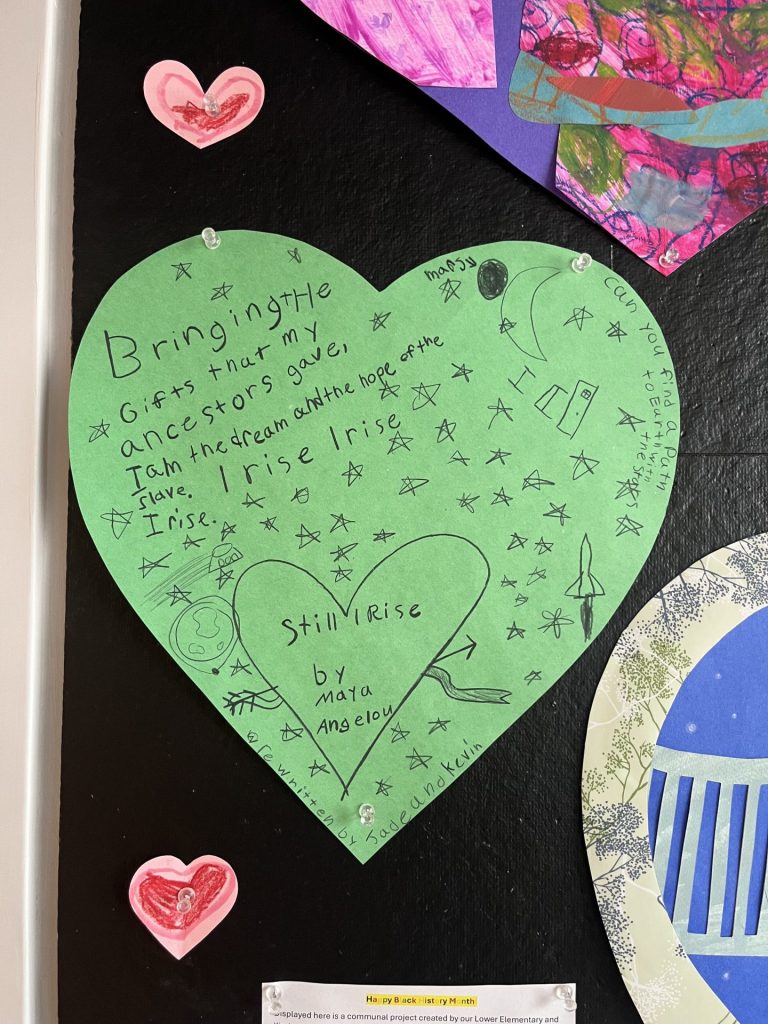 BringingtHe
Gifts that my
ancestors gave,
I am the dream and the hope of the
slave. I rise I rise
I rise.
marsy
can you find a path
to Earth with
the stars
Still I Rise
by
Maya
Angelou
rewritten by Jade and Kevin
Happy Black History Month
Displayed here is a communal project created by our Lower Elementary and